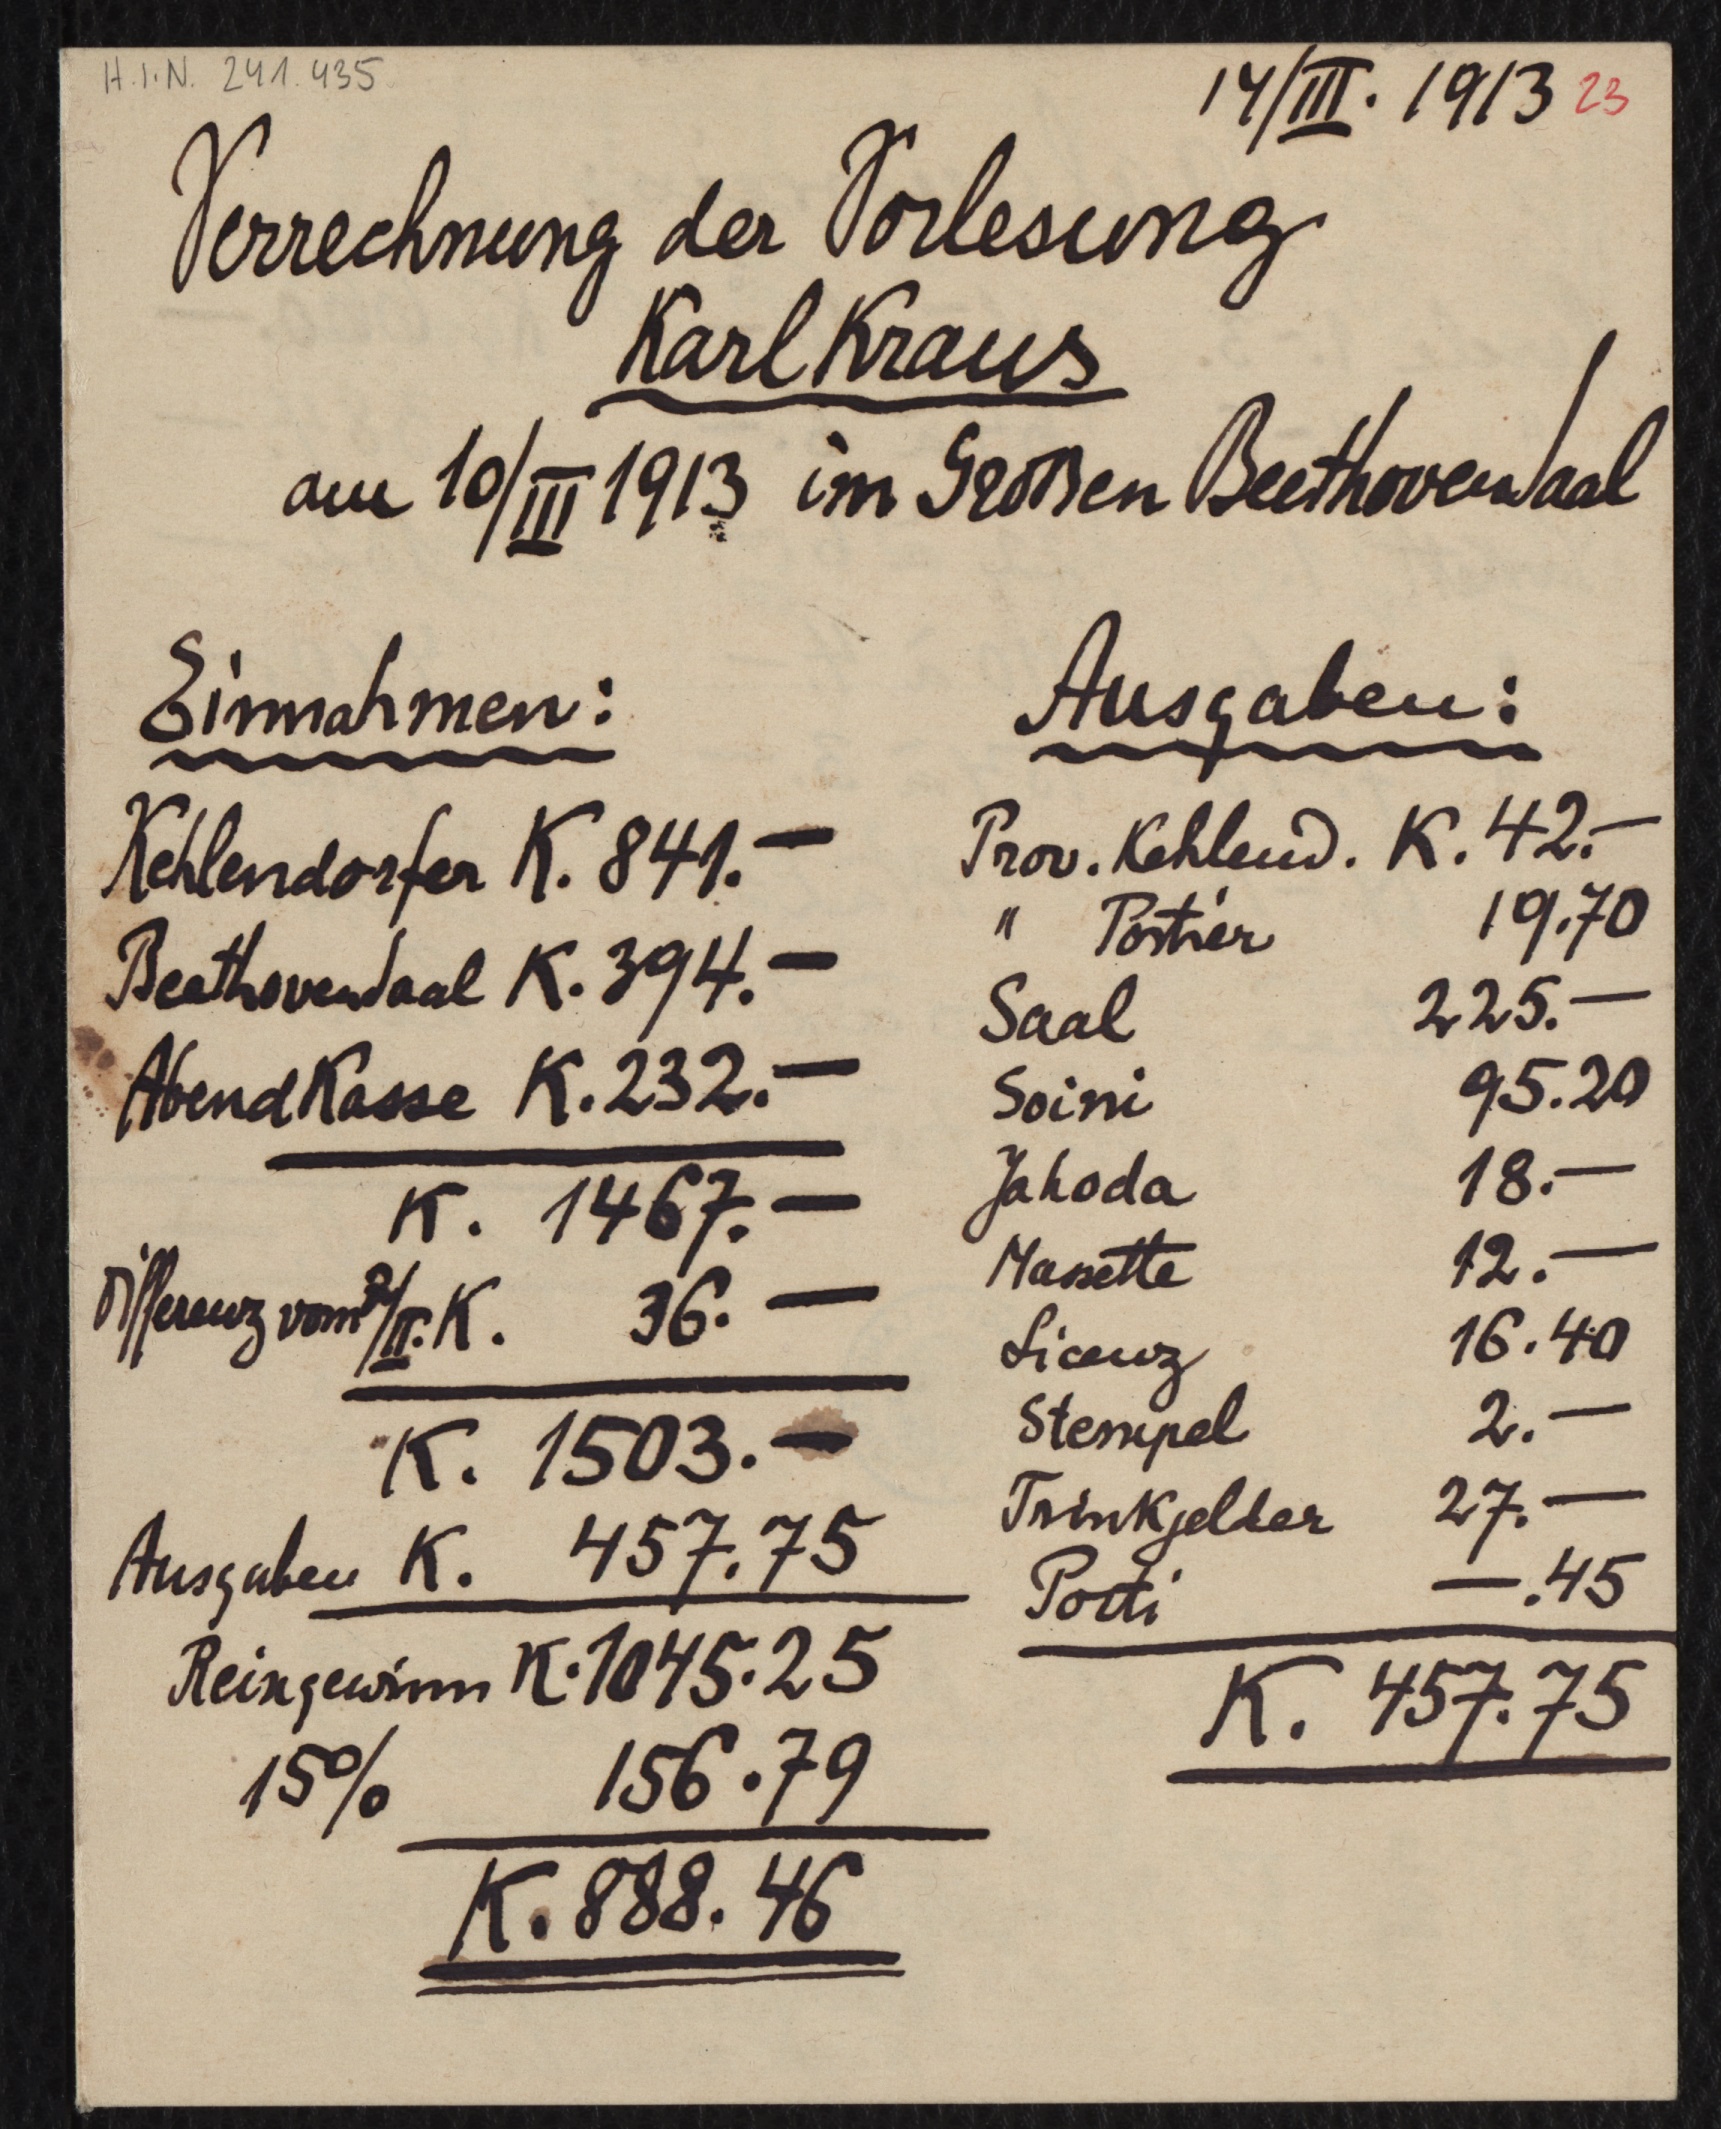 H.I.N. 241.435
14/III. 1913 23
Verrechnung der Vorlesung
Karl Kraus
am 10/III 1913 im Großen Beethovensaal
Einnahmen:
Kehlendorfer K. 841.—
Beethovensaal K. 394.—
Abendkasse K. 232.—
K. 1467.—
Differenz vom /II. K. 36.—
K. 1503.—
Ausgaben K. 457.75
Reingewinn K. 1045.25
15% 156.79
K. 888.46
Ausgaben:
Prov. Kehlend. K. 42.—
" Portier 19.70
Saal 225.—
Soini 95.20
Jahoda 18.—
Massette 12.—
Licenz 16.40
Stempel 2.—
Trinkgelder 27.—
Porti —.45
K. 457.75